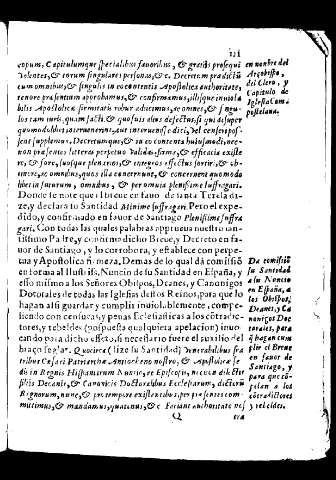 121
copum, Capitulumque specialibus favoribus, & gratiis prosequi
volentes, & eorum singulares personas, &c. Decretum prædictũ
cum omnibus, & singulis in eo contentis Apostolica authoritate,
tenore præsentium approbamus, & confirmamus, illisque inviola
bilis Apostolicæ firmitatis robur adiicimus, ac omnes, & singu
los tam iuris, quam facti, & quosvis alios defectus, si qui desuper
quomodolibet intervenerint, aut intervenisse dici, vel censeri pos
sent supplemus. Decretumque, & in eo contenta huiusmodi, nec
non præsentes litteras perpetuo validas, firmas, & efficaces existe
re, & fore, suosque plenarios, & integros effectus sortiri, & ob
tinere, ac omnibus, quos illa concernunt, & concernent quomodo
libet in futurum, omnibus, & per omnia plenissime suffragari.
Donde se note que al Breve en favor de santa Teresa di-
ze, y declara su Santidad Minime suffragari. Pero el expe-
dido, y confirmado en favor de Santiago Plenissime suffra
gari. Con todas las quales palabras apprueva nuestro san-
tissimo Padre, y confirma dicho Breve, y Decreto en fa
vor de Santiago, y lo corrobora, y establece con perpe-
tua y Apostolica firmeza. Demas de lo qual dà comissiõ
en forma al Illustriss. Nuncio de su Santidad en España, y
esso mismo a los Señores Obispos, Deanes, y Canonigos
Dotorales de todas las Iglesias destos Reinos, para que lo
hagan assi guardar y cumplir inviolablemente, compe-
liendo con censuras, y penas Eclesiasticas a los cõtradic-
tores, y rebeldes (pospuesta qualquiera apelacion) invo-
cando para dicho efeto, si necessario fuere el auxilio del
braço seglar. Quocirca (dize su Santidad) Venerabilibus fra
tribus Cæsari Patriarchæ Antiocheno nostro, & Apostolicæ se
dis in Regnis Hispaniarum Nuncio, ac Episcopis, necnon dilectis
filiis Decanis, & Canonicis Doctoralibus Ecclesiarum, dictorũ
Regnorum, nunc, & pro tempore existentibus per præsentes com
mittimus, & mandamus, quatenus, &c. Faciant authoritate nos
Q
tra
en nombre del
Arçobispo,
del Clero, y
Capitulo de
Iglesia Com
postelana.
Da comissiõ
su Santidad
a su Nuncio
en España, a
los Obispos,
Deanes, y Ca
nonigos Doc
torales, para
q̃ hagan cum
plir el Breve
en favor de
Santiago, y
para que cõ-
pelan a los
cõtradictores
y rebeldes.